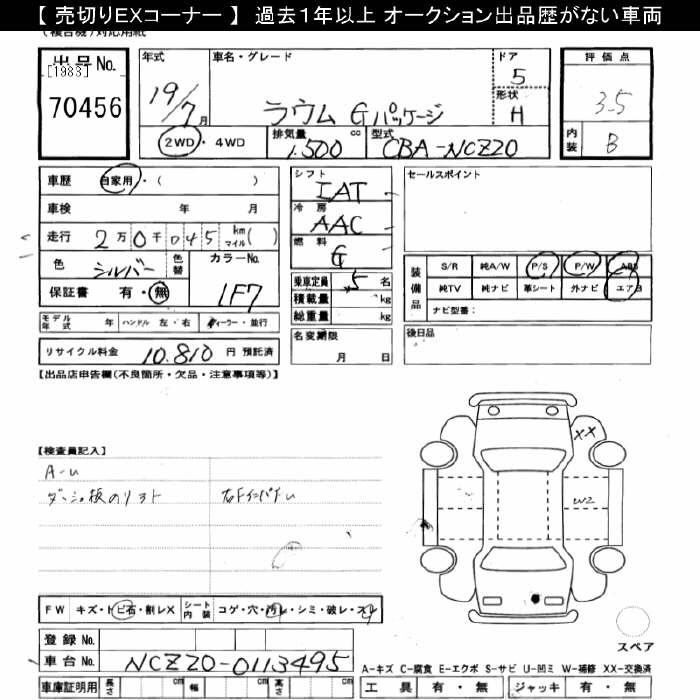 【 売切りEXコーナー 】 過去１年以上 オークション出品歴がない車両
出品No.
[1983]
70456
年式
19/7月
車名・グレード
ラウム Gパッケージ
ドア
5
形状
H
評価点
3.5
内装
B
2WD・4WD
排気量
1,500 cc
型式
CBA-NCZ20
車歴 自家用・( )
車検 年 月
走行 2万0千045 km マイル( )
色 シルバー
色替
カラーNo.
1F7
保証書 有・無
モデル年式 年 ハンドル 左・右 ディーラー・並行
リサイクル料金 10,810 円 預託済
シフト
IAT
冷房
AAC
燃料
G
乗車定員 5 名
積載量 kg
総重量 kg
名変期限
月 日
セールスポイント
装備品
S/R 純A/W P/S P/W ABS
純TV 純ナビ 革シート 外ナビ エアB
ナビ型番:
後日品
【出品店申告欄(不良箇所・欠品・注意事項等)】
【検査員記入】
A-U
XX
W2
FW キズ・トビ石・割レX
シート内装 コゲ・穴・汚レ・シミ・破レ・スレ
登録No.
車台No. NCZ20-0113495
車庫証明用 長さ cm 幅 cm 高さ cm
スペア
A-キズ C-腐食 E-エクボ S-サビ U-凹ミ W-補修 XX-交換済
工具 有・無 ジャッキ 有・無